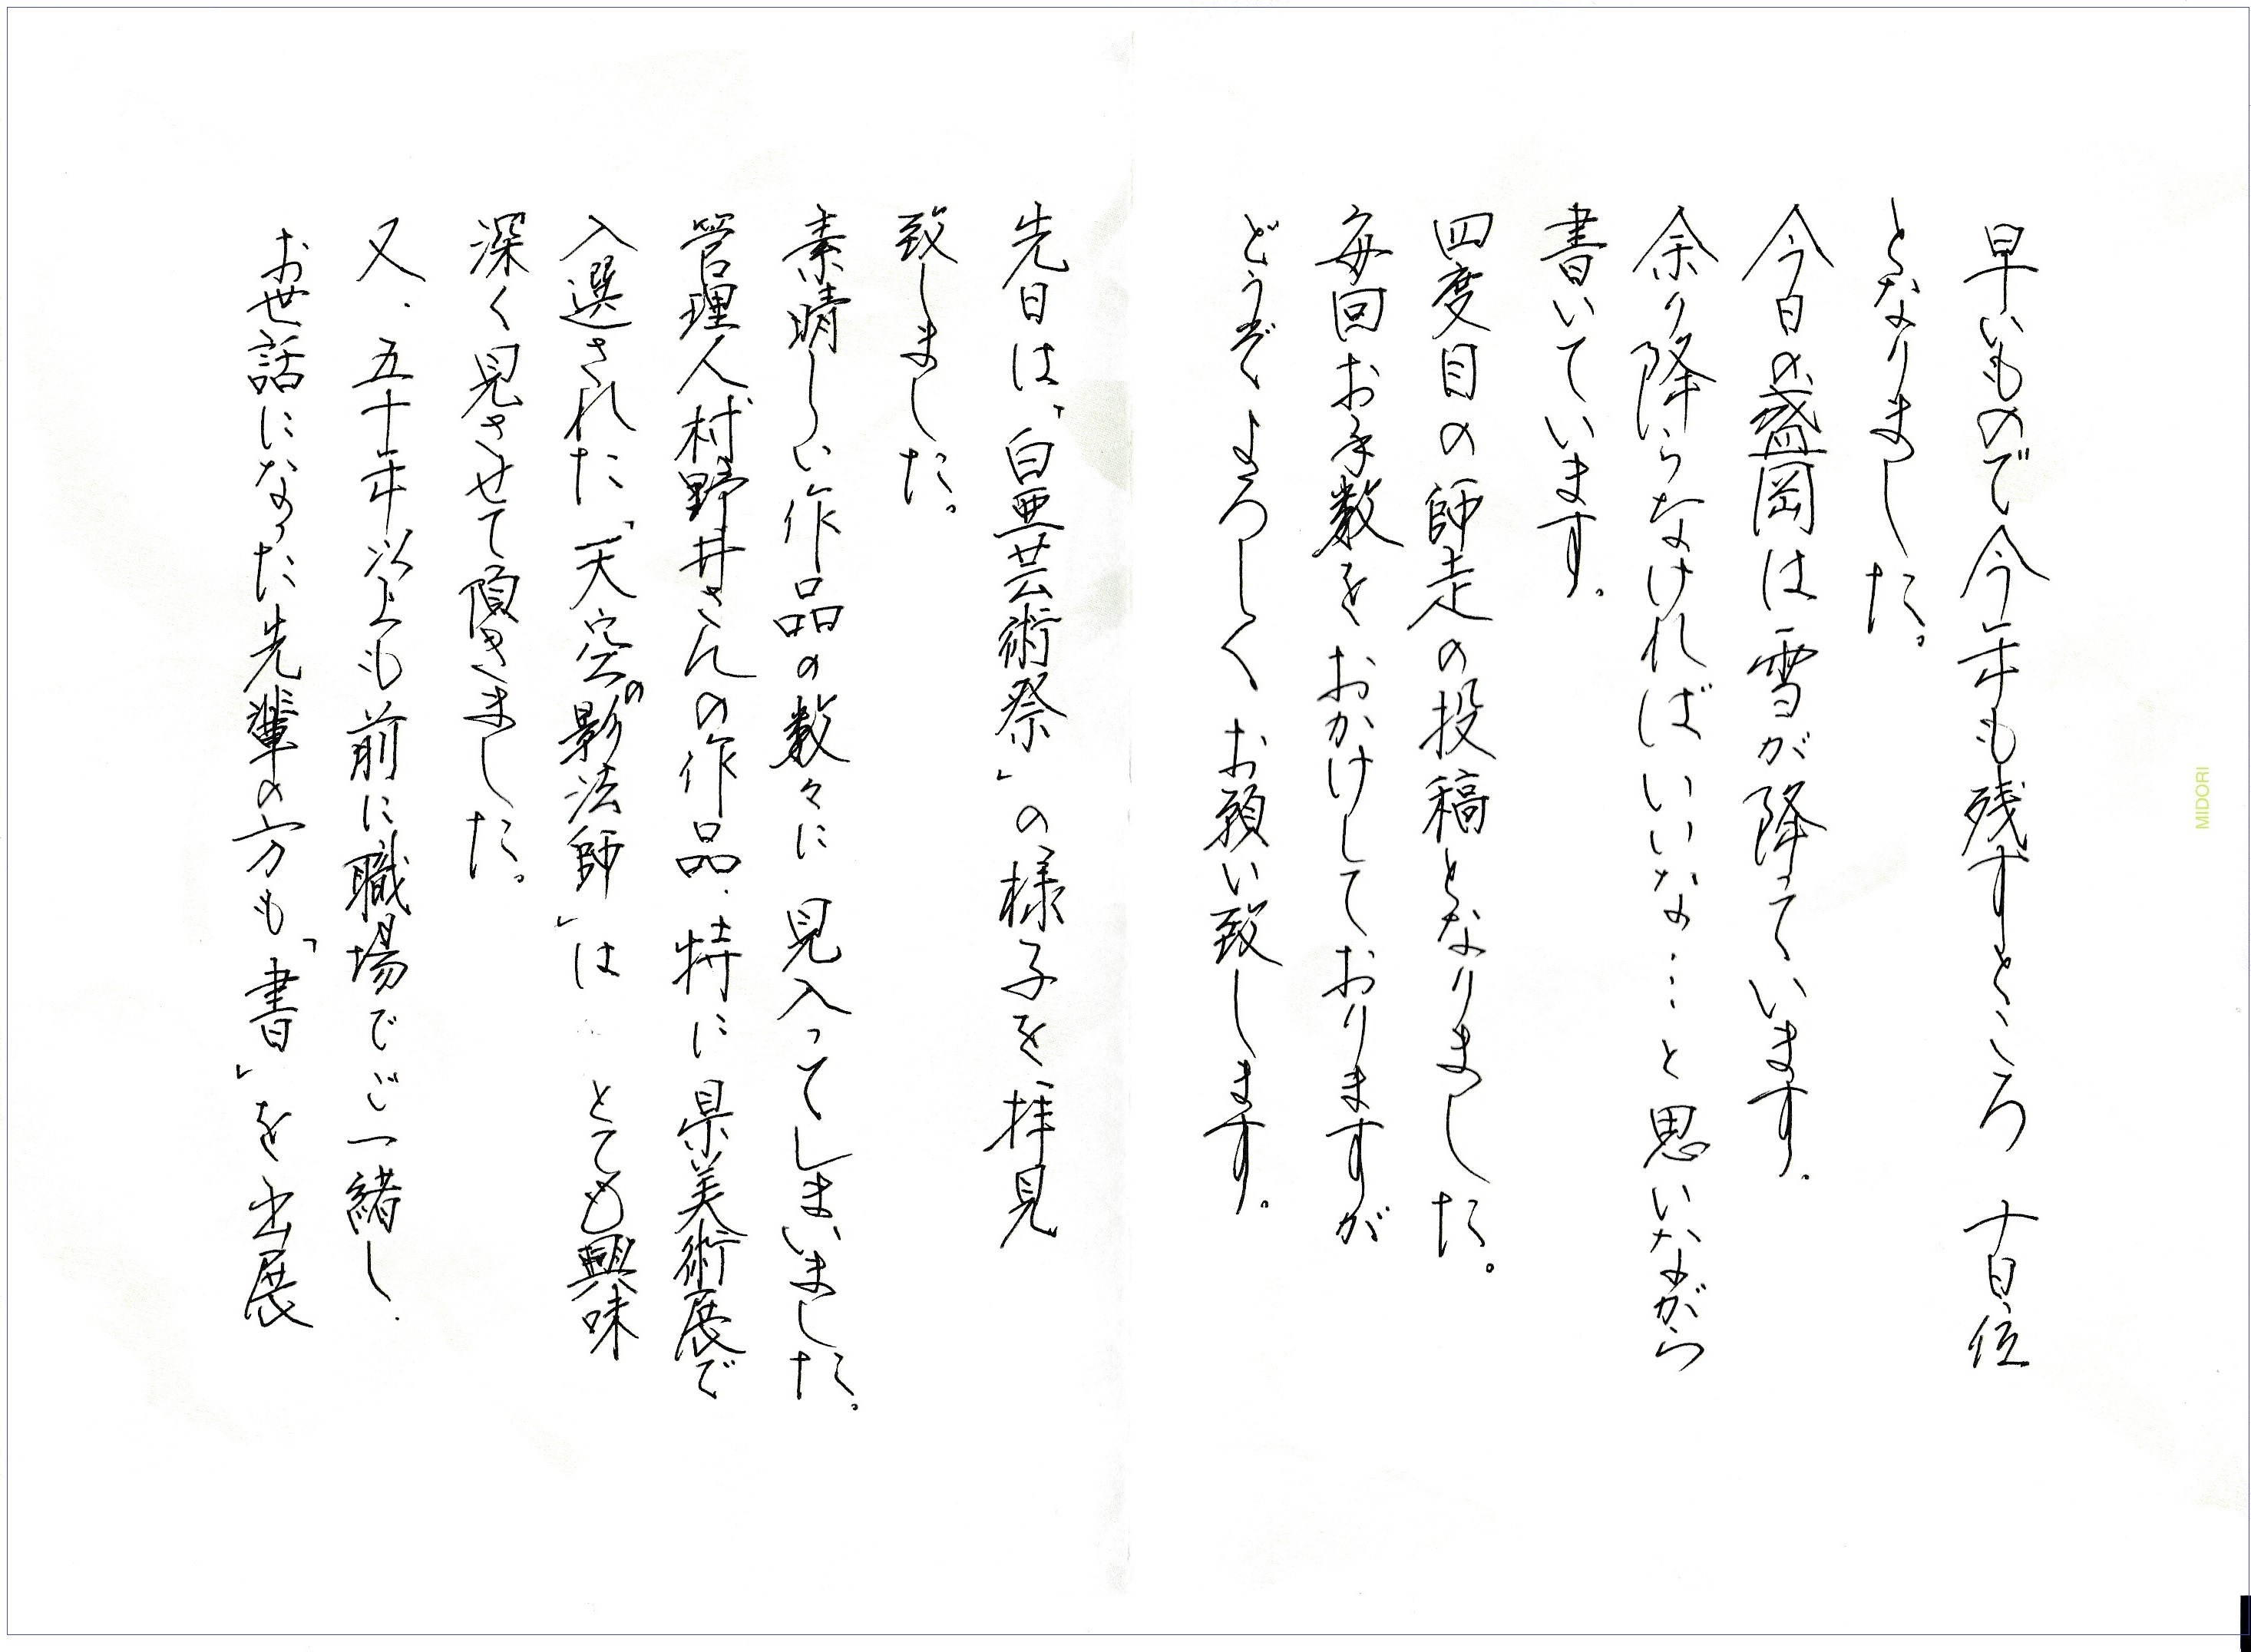 早いもので今年も残すところ 十日位
となりました。
今日の盛岡は雪が降っています。
余り降らなければいいな…と思いながら
書いています。
四度目の師走の投稿となりました。
毎回お手数をおかけしておりますが
どうぞよろしくお願い致します。
先日は、「白亜芸術祭」の様子を拝見
致しました。
素晴しい作品の数々に見入ってしまいました。
管理人村野井さんの作品、特に県美術展で
入選された「天空の影法師」は とても興味
深く見させて頂きました。
又、五十年以上も前に職場でご一緒し、
お世話になった先輩の方も「書」を出展
MIDORI